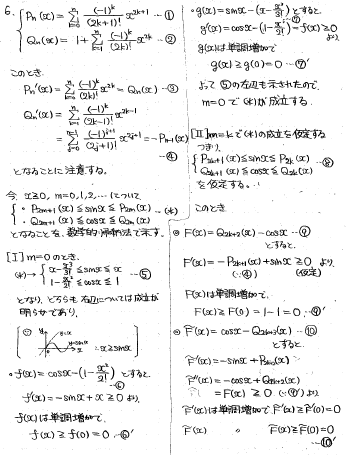 6. { Pn(x) = Σ_{k=0}^{n} (-1)^k/(2k+1)! x^{2k+1} …①
Qn(x) = 1 + Σ_{k=1}^{n} (-1)^k/(2k)! x^{2k} …②
このとき、
Pn'(x) = Σ_{k=0}^{n} (-1)^k/(2k)! x^{2k} = Qn(x) …③
Qn'(x) = Σ_{k=1}^{n} (-1)^k/(2k-1)! x^{2k-1}
= Σ_{j=0}^{n-1} (-1)^{j+1}/(2j+1)! x^{2j+1} = -P_{n-1}(x) …④
となることに注意する。
今 x≧0, m=0,1,2,… について
{ ・P_{2m+1}(x) ≦ sinx ≦ P_{2m}(x)
・Q_{2m+1}(x) ≦ cosx ≦ Q_{2m}(x) …(*)
となることを、数学的帰納法で示す。
[I] m=0 のとき、
(*) → { x - x³/3! ≦ sinx ≦ x
1 - x²/2! ≦ cosx ≦ 1 …⑤
となり、どちらも 右辺については成立が
明らかであり、
[ y y=x x ∴ x≧sinx ]
・f(x) = cosx - (1 - x²/2!) とすると …⑥
f'(x) = -sinx + x ≧ 0 より
f(x) は単調増加で、
f(x) ≧ f(0) = 0 …⑥'
・g(x) = sinx - (x - x³/3!) とすると …⑦
g'(x) = cosx - (1 - x²/2!) = f(x) ≧ 0 より
g(x) は単調増加で
g(x) ≧ g(0) = 0 …⑦'
よって ⑤の左辺も示されたので、
m=0 で (*) が成立する。
[II] m=k で (*) の成立を仮定する
つまり、
{ P_{2k+1}(x) ≦ sinx ≦ P_{2k}(x)
Q_{2k+1}(x) ≦ cosx ≦ Q_{2k}(x) …⑧
を仮定する。
このとき
◎ F(x) = Q_{2k+2}(x) - cosx …⑨
とすると、
F'(x) = -P_{2k+1}(x) + sinx ≧ 0 より
(∵④) (仮定)
F(x) は単調増加で、
F(x) ≧ F(0) = 1 - 1 = 0 …⑨'
◎ F̃(x) = cosx - Q_{2k+3}(x) …⑩
とすると、
F̃'(x) = -sinx + P_{2k+2}(x)
F̃''(x) = -cosx + Q_{2k+2}(x)
= F(x) ≧ 0 (∵⑨') より
F̃'(x) は単調増加で F̃'(x) ≧ F̃'(0) = 0
F̃(x) 〃 F̃(x) ≧ F̃(0) = 0
…⑩'